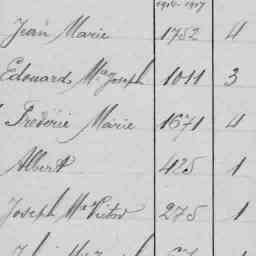 1914-1917
Jean Marie 1752 4
Edouard Mie Joseph 1011 3
Frédéric Marie 1671 4
Albert 425 1
Joseph Mie Victor 275 1